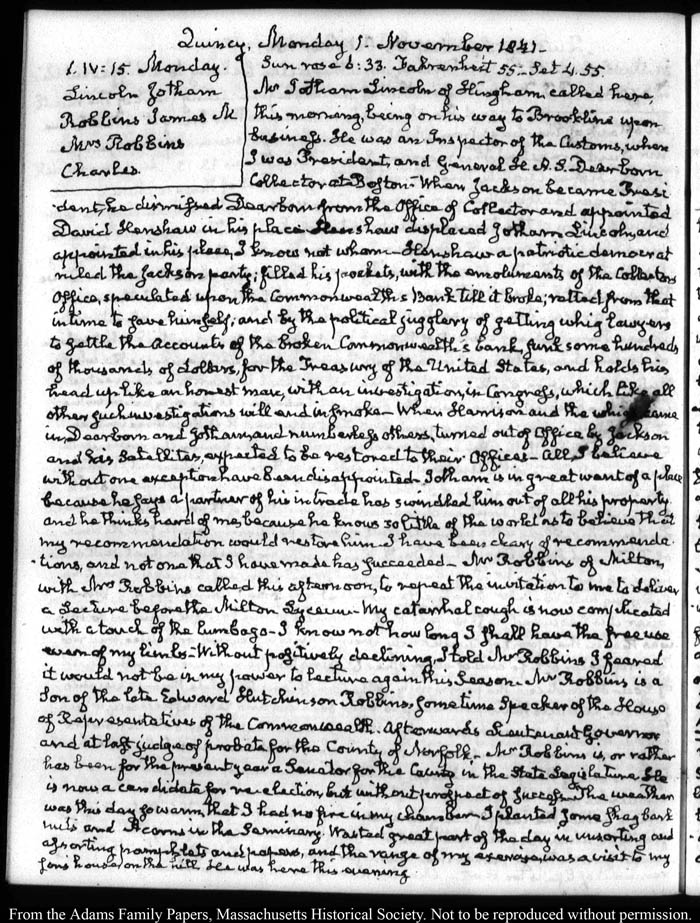 Quincy, Monday 1. November 1841.
1. IV:15. Monday.
Lincoln Jotham
Robbins James M
Mrs Robbins
Charles.
Sun rose 6:33. Fahrenheit 55. Set 4.55.
Mr Jotham Lincoln of Hingham called here,
this morning, being on his way to Brookline upon
business. He was an Inspector of the Customs, when
I was President, and General H. A. S. Dearborn
Collector at Boston. When Jackson became Presi
dent, he dismissed Dearborn from the Office of Collector and appointed
David Henshaw in his place. Henshaw displaced Jotham Lincoln, and
appointed in his place, I know not whom. Henshaw a patriotic democrat
ruled the Jackson party; filled his pockets, with the emoluments of the Collectors
Office, speculated upon the Commonwealth's Bank till it broke; ratted from that
in time to save himself; and by the political jugglery of getting whig lawyers
to settle the Accounts of the broken Commonwealth's bank, sunk some hundreds
of thousands of dollars, for the Treasury of the United States, and holds his
head up like an honest man, with an investigation, in Congress, which like all
other such investigations will end in smoke. When Harrison and the whigs came
in, Dearborn and Jotham, and numberless others, turned out of Office by Jackson
and his Satellites, expected to be restored to their Offices. All, I believe
without one exception have been disappointed. Jotham is in great want of a place
because he says a partner of his in trade has swindled him out of all his property
and he thinks hard of me, because he knows so little of the world as to believe that
my recommendation would restore him. I have been chary of recommenda
tions, and not one that I have made has succeeded. Mr Robbins of Milton,
with Mrs Robbins called this afternoon, to repeat the invitation to me to deliver
a Lecture before the Milton Lyceum. My catarrhal cough is now complicated
with a touch of the lumbago. I know not how long I shall have the free use
even of my limbs. Without positively declining, I told Mr Robbins I feared
it would not be in my power to lecture again this Season. Mr Robbins is a
Son of the late Edward Hutchinson Robbins, sometime Speaker of the House
of Representatives of the Commonwealth. Afterwards Lieutenant Governor
and at last judge of probate for the County of Norfolk. Mr Robbins is, or rather
has been for the present year a Senator for the County in the State Legislature. He
is now a candidate for re-election, but without prospect of success. The weather
was this day so warm, that I had no fire in my chamber. I planted some shagbark
nuts and Acorns in the Seminary. Wasted great part of the day in unsorting and
assorting pamphlets and papers, and the range of my exercise, was a visit to my
son's house, on the hill. He was here this evening.
From the Adams Family Papers, Massachusetts Historical Society. Not to be reproduced without permission.